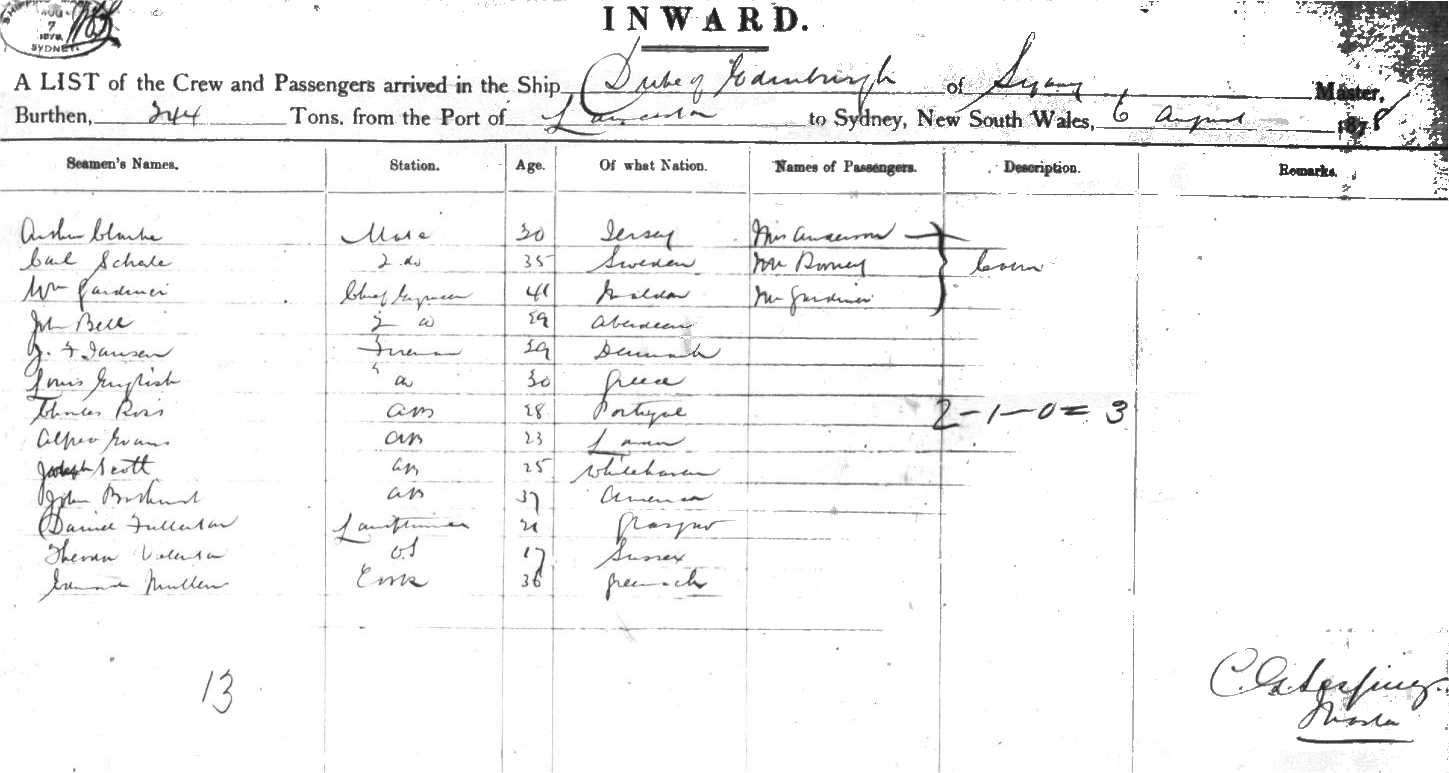 SHIPPING
AUG
7
1878
SYDNEY.
INWARD.
A LIST of the Crew and Passengers arrived in the Ship Duke of Edinburgh of Sydney Master,
Burthen, 244 Tons, from the Port of Launceston to Sydney, New South Wales, 6 August 1878
Seamen's Names. Station. Age. Of what Nation. Names of Passengers. Description. Remarks.
Mate 30 Jersey Mrs Anderson
Carl 2 do 35 Sweden Mr
Wm Gardiner Chief Engineer 41 Maldon Mr Gardiner
John Bell 2 do 29 Aberdeen
Jansen Fireman 29 Denmark
Louis English do 30 Greece
Charles Ross AB 28 Portugal
Alfred Evans AB 23
Joseph Scott AB 25 Whitehaven
John AB 37 America
Daniel Fullerton 21 Glasgow
OS 17 Sussex
Edmund Mullen Cook 36 Greenock
2-1-0=3
13
Master